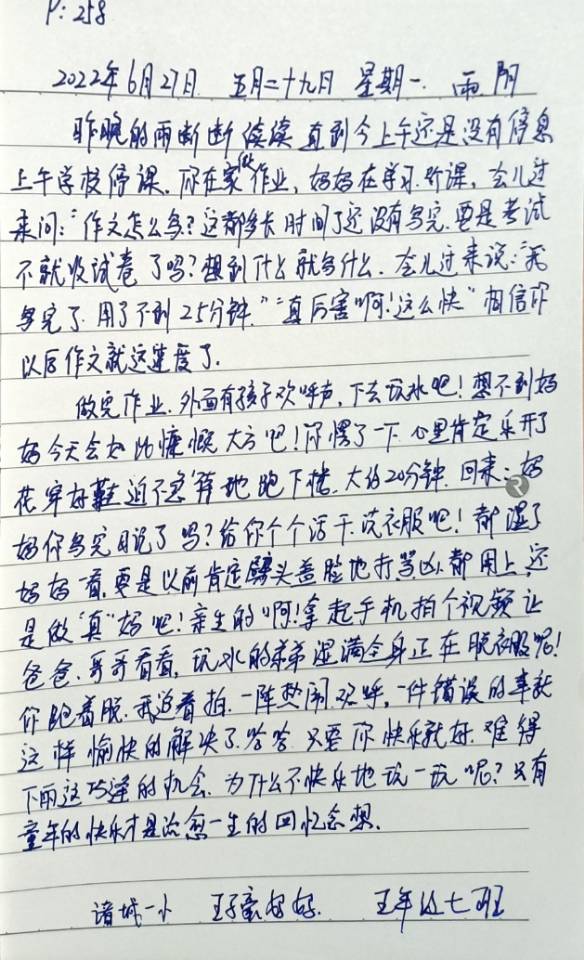 P:258
2022年6月27日 五月二十九日 星期一 雨 阴
昨晚的雨断断续续直到今上午还是没有停息
上午学校停课,你在家做作业,妈妈在学习.听课,会儿过
来问:"作文怎么写?这都多长时间了还没有写完.要是考试
不就收试卷了吗?想到什么就写什么.会儿过来说:"我
写完了.用了不到25分钟""真厉害啊!这么快"相信你
以后作文就这速度了.
做完作业.外面有孩子欢呼声,下去玩水吧!想不到妈
妈今天会如此慷慨大方吧!你愣了一下.心里肯定乐开了
花穿好鞋迫不急待地跑下楼.大约20分钟.回来:妈
妈你写完日说了吗?给你个个活干.洗衣服吧!都湿了
妈妈一看,要是以前肯定劈头盖脸地打骂凶.都用上,还
是做"真"妈吧!亲生的"啊!拿起手机拍个视频让
爸爸.哥哥看看,玩水的弟弟湿满全身正在脱衣服呢!
你跑着脱.我追着拍.一阵热闹.欢呼,一件错误的事就
这样愉快的解决了.哈哈.只要你快乐就好.难得
下雨这巧逢的机会.为什么不快乐地玩一玩呢?只有
童年的快乐才是治愈一生的回忆念想.
诸城一小 王豪妈妈. 五年级七班